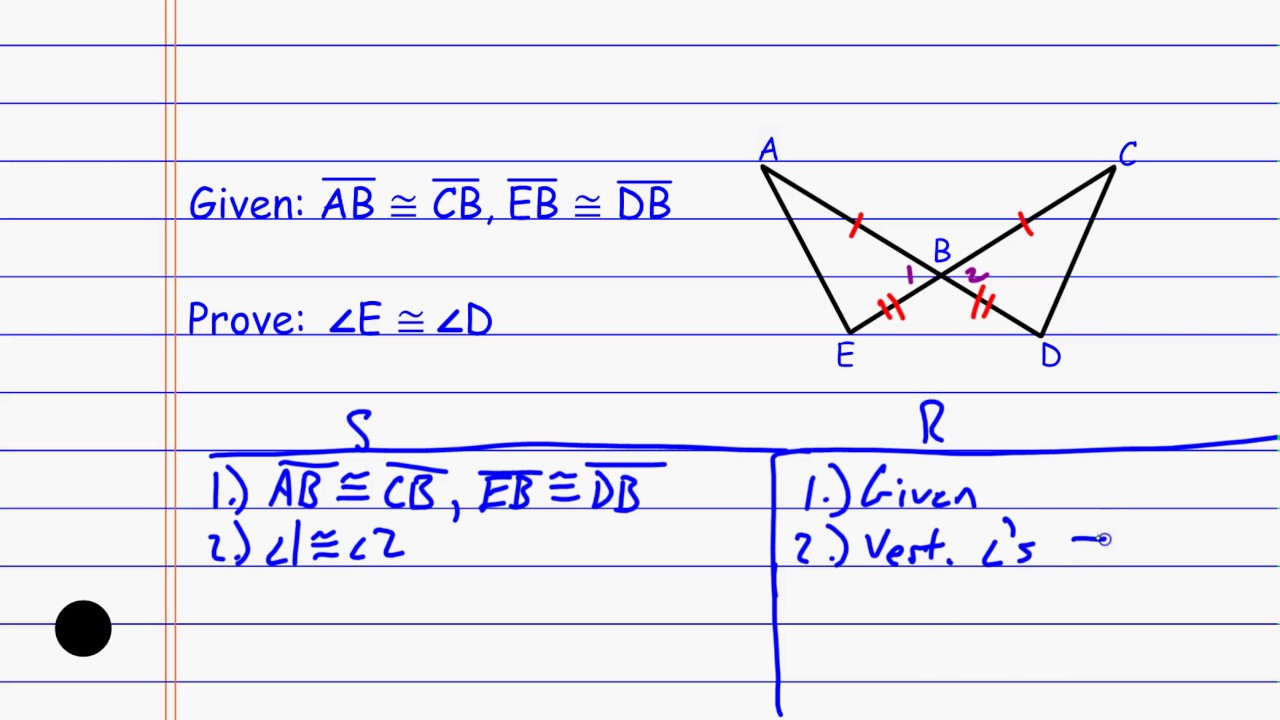 A
C
Given: AB ≅ CB, EB ≅ DB
B
1 2
Prove: ∠E ≅ ∠D
E
D
S R
1.) AB ≅ CB, EB ≅ DB 1.) Given
2.) ∠1 ≅ ∠2 2.) Vert. ∠'s →